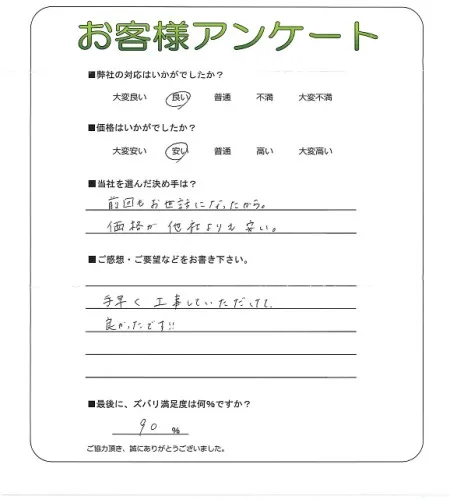 お客様アンケート
■弊社の対応はいかがでしたか？
大変良い 良い 普通 不満 大変不満
■価格はいかがでしたか？
大変安い 安い 普通 高い 大変高い
■当社を選んだ決め手は？
前回もお世話になったから。
価格が他社よりも安い。
■ご感想・ご要望などをお書き下さい。
手早く工事していただけて、
良かったです!!
■最後に、ズバリ満足度は何%ですか？
90 %
ご協力頂き、誠にありがとうございました。